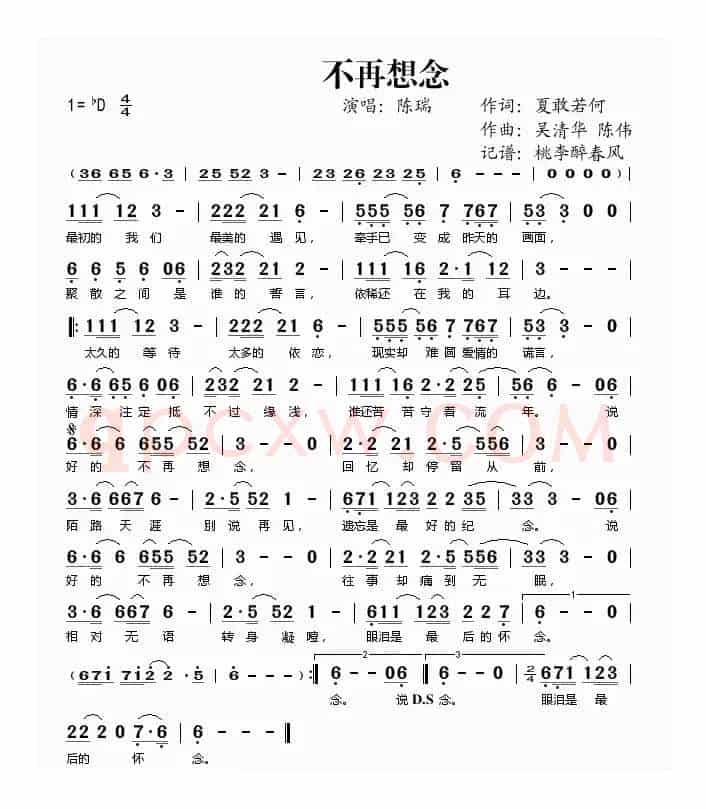 不再想念
1=♭D 4/4 演唱：陈瑞 作词：夏敢若何
作曲：吴清华 陈伟
记谱：桃李醉春风
(36 65 6·3 | 25 52 3 - | 23 26 23 25 | 6 - - - | 0 0 0 0)
111 12 3 - | 222 21 6 - | 555 56 7 767 | 53 3 0 0
最初的 我们 最美的 遇见， 牵手已 变成 昨天的 画面，
6 6 5 6 06 | 232 21 2 - | 111 16 2·1 12 | 3 - - -
聚散之间是 谁的 誓言， 依稀还 在我的 耳边。
‖: 111 12 3 - | 222 21 6 - | 555 56 7 767 | 53 3 - 0
太久的 等待 太多的 依恋， 现实却 难圆 爱情的 谎言，
6·6 65 6 06 | 232 21 2 - | 111 16 2·2 25 | 56 6 - 06
情深注定抵 不过缘浅， 谁还苦 苦守着流 年。 说
6·6 6 655 52 | 3 - - 0 | 2·2 21 2·5 556 | 3 - - 0
好的 不再想 念， 回忆却停留从 前，
3·6 667 6 - | 2·5 52 3 - | 671 123 2 235 | 33 3 - 06
陌路天涯 别说再见， 遗忘是最好的纪 念。 说
6·6 6 655 52 | 3 - - 0 | 2·2 21 2·5 556 | 33 3 - 0
好的 不再想 念， 往事却痛到无 眠，
3·6 667 6 - | 2·5 52 1 - | 611 123 2 2 7 | 6 - - 0
相对无语 转身凝噎， 眼泪是 最 后的怀 念。
1
(671 712 2 ·5 | 6 - - -) :‖ 6 - - 06 ‖ 6 - - - | 2/4 671 123
2 3
念。 说 D.S 念。 眼泪是 最
22 2 0 7·6 | 6 - - - ‖
后的 怀 念。
qpcxw.COM